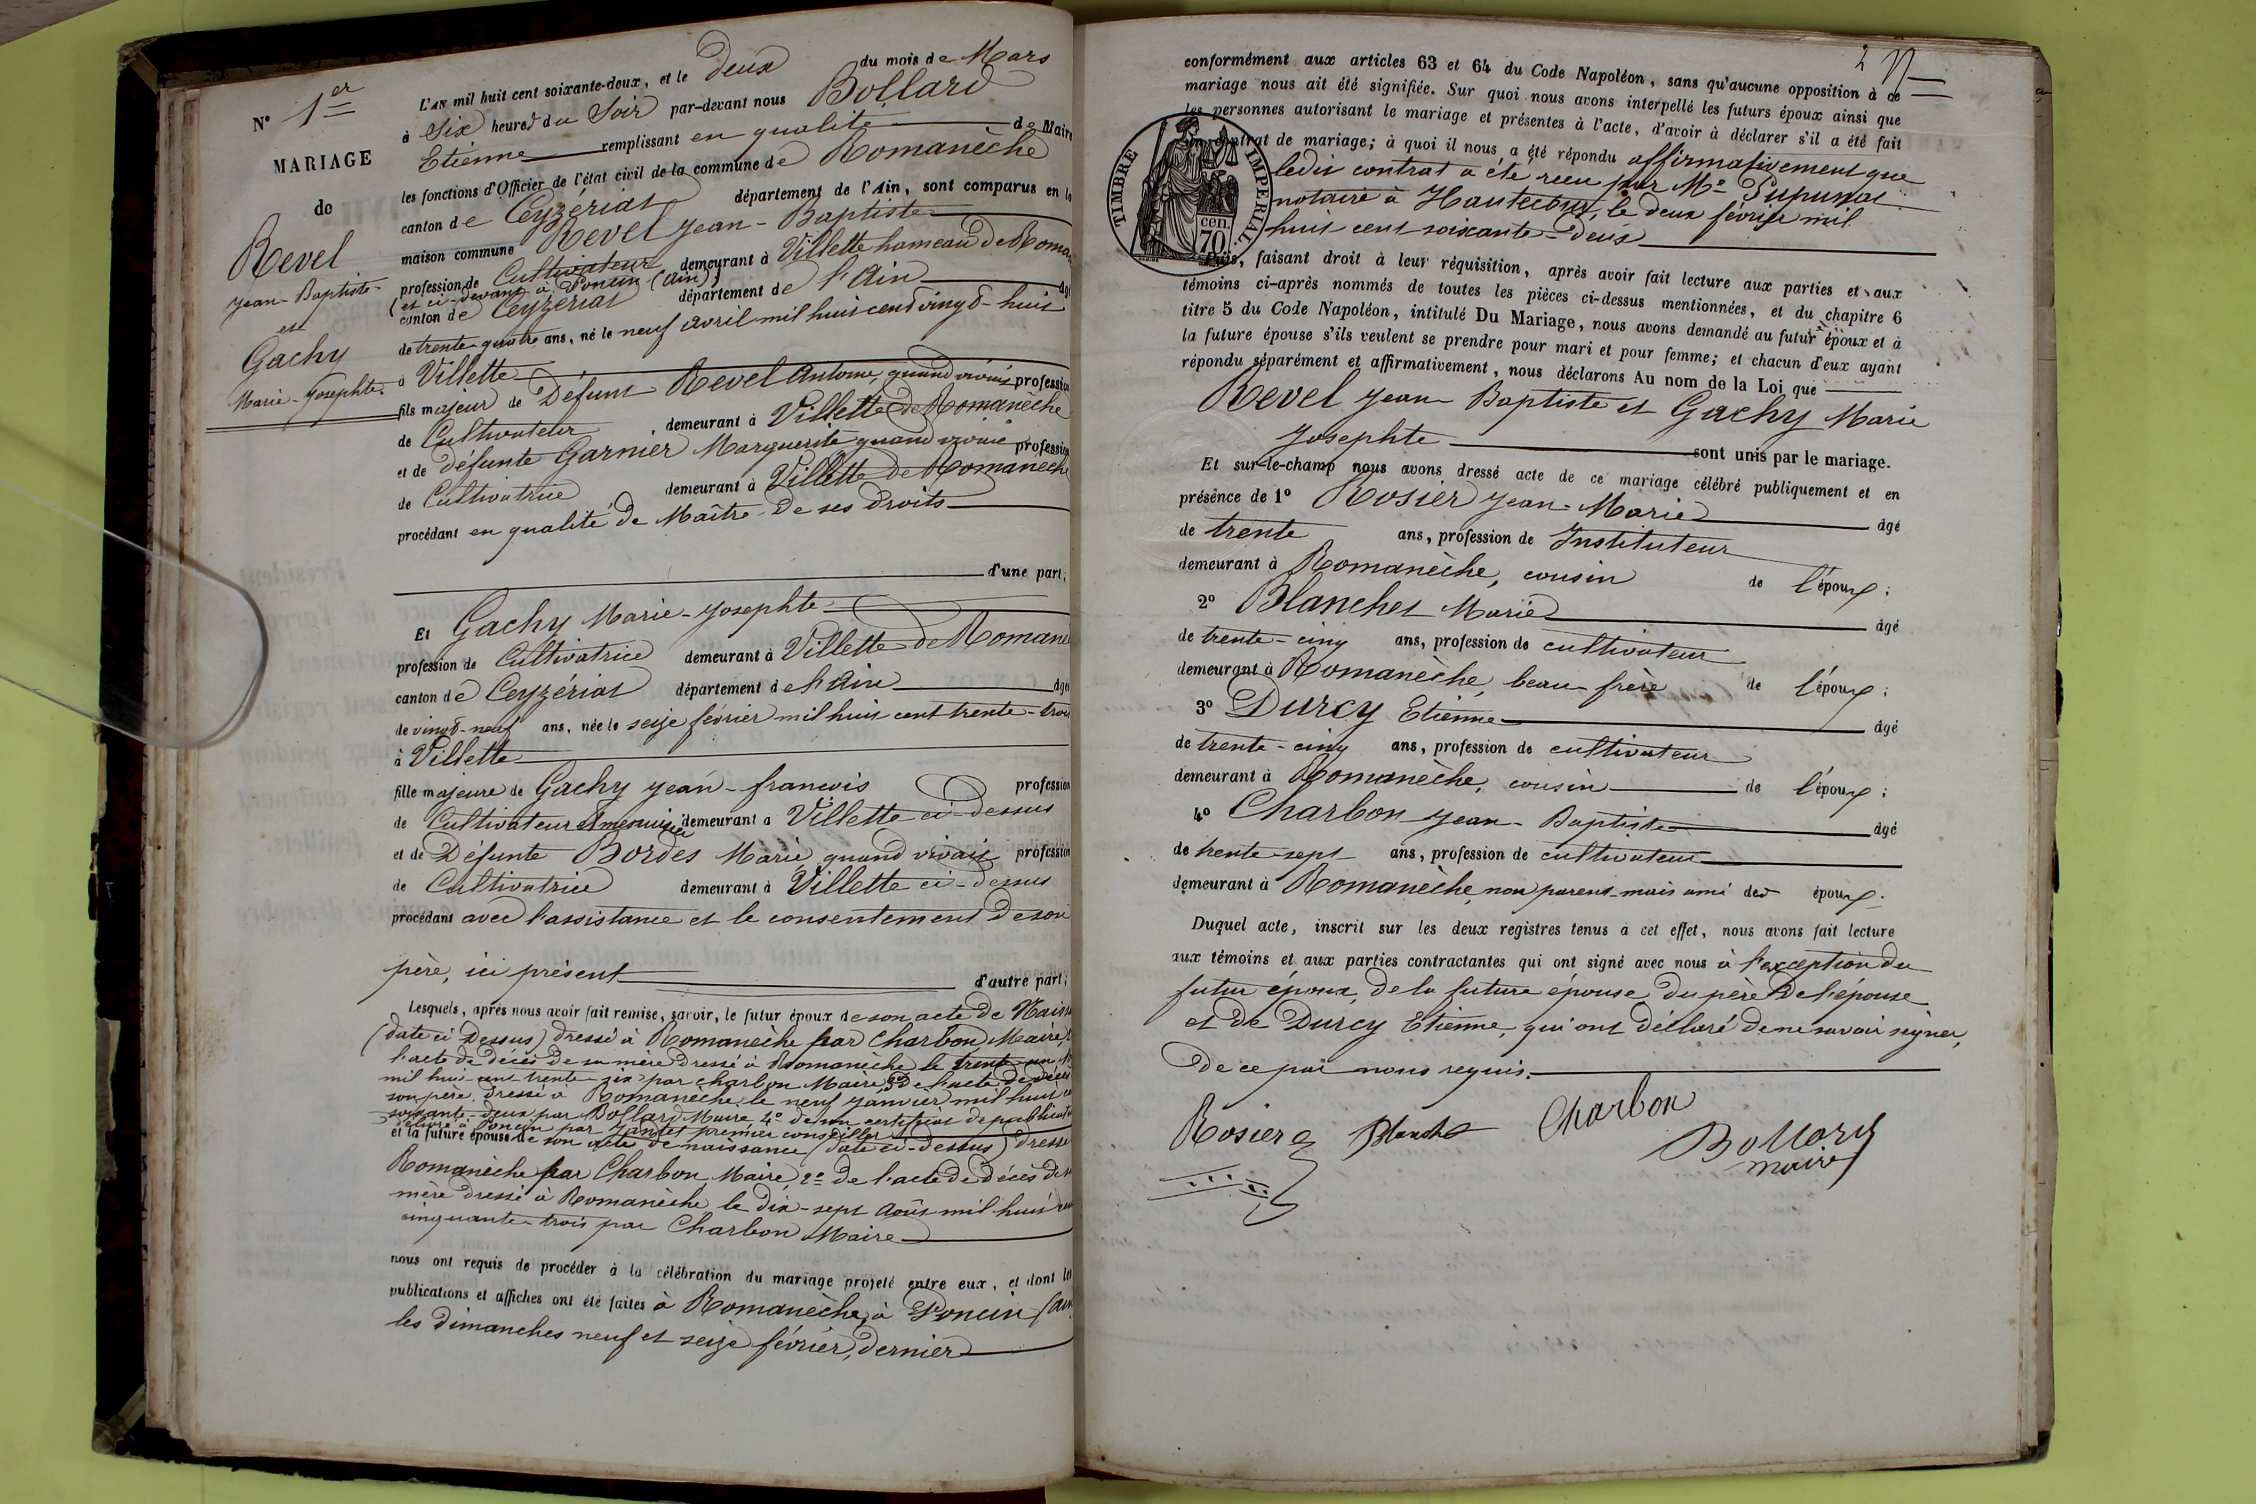 N° 1er
MARIAGE
de
Revel
Jean-Baptiste
et
Gachy
Marie-Josephte
L'AN mil huit cent soixante-deux, et le deux du mois de Mars
à Six heures du Soir par-devant nous Bollard
Etienne remplissant en qualité de Maire
les fonctions d'Officier de l'état civil de la commune de Romanèche
canton de Ceyzériat département de l'Ain, sont comparus en la
maison commune Revel Jean-Baptiste
profession de Cultivateur demeurant à Villette hameau de Roman
(et ci-devant à Poncin (Ain))
canton de Ceyzériat département de l'Ain âgé
de trente-quatre ans, né le neuf avril mil huit cent vingt-huit
à Villette
fils majeur de Défunt Revel Antoine, quand vivait profession
de Cultivateur demeurant à Villette de Romanèche
et de défunte Garnier Marguerite quand vivait profession
de Cultivatrice demeurant à Villette de Romanèche
procédant en qualité de Maître de ses droits
d'une part;
Et Gachy Marie-Josephte
profession de Cultivatrice demeurant à Villette de Romane
canton de Ceyzériat département de l'Ain âgée
de vingt-neuf ans, née le seize février mil huit cent trente-trois
à Villette
fille majeure de Gachy Jean-françois profession
de Cultivateur et menuisier demeurant à Villette ci-dessus
et de Défunte Bordes Marie, quand vivait profession
de Cultivatrice demeurant à Villette ci-dessus
procédant avec l'assistance et le consentement de son
père, ici présent d'autre part;
Lesquels, après nous avoir fait remise, savoir, le futur époux de son acte de Naiss
(date ci Dessus) dressé à Romanèche par Charbon, Maire,
l'acte de décès de sa mère dressé à Romanèche le trente-un
mil huit cent trente-six par charbon Maire, de l'acte de décès
son père, dressé à Romanèche, le neuf janvier mil huit ce
soixante-deux par Bollard Maire 4° de un certificat de publicat
délivré à Poncin par premier conseiller
et la future épouse de son acte de naissance (date ci-dessus) dressé
Romanèche par Charbon, Maire, 2° De l'acte de décès de
mère dressé à Romanèche le dix-sept Août mil huit cen
cinquante-trois par Charbon Maire
nous ont requis de procéder à la célébration du mariage projeté entre eux, et dont les
publications et affiches ont été faites à Romanèche, à Poncin (Ain
les dimanches neuf et seize février, dernier
2
conformément aux articles 63 et 64 du Code Napoléon, sans qu'aucune opposition à ce
mariage nous ait été signifiée. Sur quoi nous avons interpellé les futurs époux ainsi que
les personnes autorisant le mariage et présentes à l'acte, d'avoir à déclarer s'il a été fait
un contrat de mariage; à quoi il nous a été répondu affirmativement que
ledit contrat a été reçu par Me
notaire à Hautecour, le deux février mil
huit cent soixante-deux
TIMBRE IMPERIAL
70 cen.
Puis, faisant droit à leur réquisition, après avoir fait lecture aux parties et aux
témoins ci-après nommés de toutes les pièces ci-dessus mentionnées, et du chapitre 6
titre 5 du Code Napoléon, intitulé Du Mariage, nous avons demandé au futur époux et à
la future épouse s'ils veulent se prendre pour mari et pour femme; et chacun d'eux ayant
répondu séparément et affirmativement, nous déclarons Au nom de la Loi que
Revel Jean Baptiste et Gachy Marie
Josephte sont unis par le mariage.
Et sur-le-champ nous avons dressé acte de ce mariage célébré publiquement et en
présence de 1° Rosier Jean-Marie âgé
de trente ans, profession de Instituteur
demeurant à Romanèche, cousin de l'époux;
2° Blanchet Marie âgé
de trente-cinq ans, profession de cultivateur
demeurant à Romanèche, beau-frère de l'époux;
3° Durcy Etienne âgé
de trente-cinq ans, profession de cultivateur
demeurant à Romanèche, cousin de l'époux;
4° Charbon Jean-Baptiste âgé
de trente-sept ans, profession de cultivateur
demeurant à Romanèche, non parent mais ami des époux.
Duquel acte, inscrit sur les deux registres tenus à cet effet, nous avons fait lecture
aux témoins et aux parties contractantes qui ont signé avec nous à l'exception du
futur époux, de la future épouse du père de l'épouse
et de Durcy Etienne, qui ont déclaré de ne savoir signer,
de ce par nous requis.
Rosier Blanchet Charbon
Bollard
maire